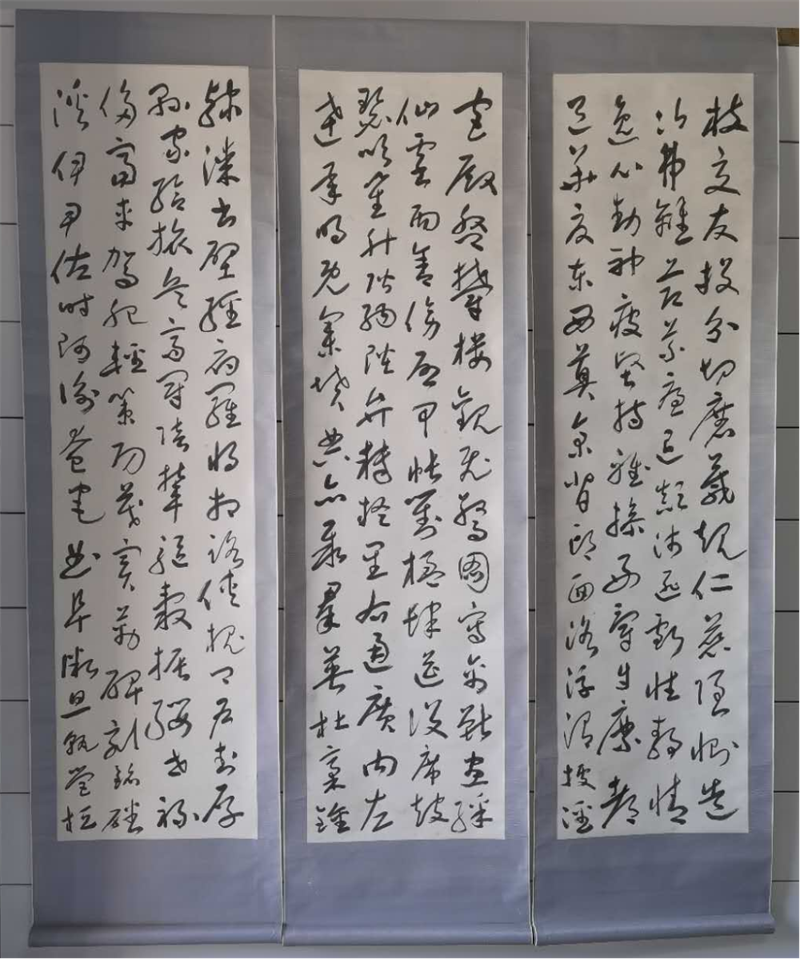 枝交友投分切磨箴規仁慈隱惻造
次弗離節義廉退顛沛匪虧性靜情
逸心動神疲堅持雅操好爵自縻都
邑華夏東西貳京背邙面洛浮渭據涇
宮殿盤鬱樓觀飛驚圖寫禽獸畫綵
仙靈丙舍傍啓甲帳對楹肆筵設席鼓
瑟吹笙升階納陛弁轉疑星右通廣內左
達承明既集墳典亦聚群英杜稾鍾
隸漆書壁經府羅將相路俠槐卿戶封
縣家給兵高冠陪輦驅轂振纓世祿
侈富車駕肥輕策功茂實勒碑刻銘磻
溪伊尹佐時阿衡奄宅曲阜微旦孰營桓